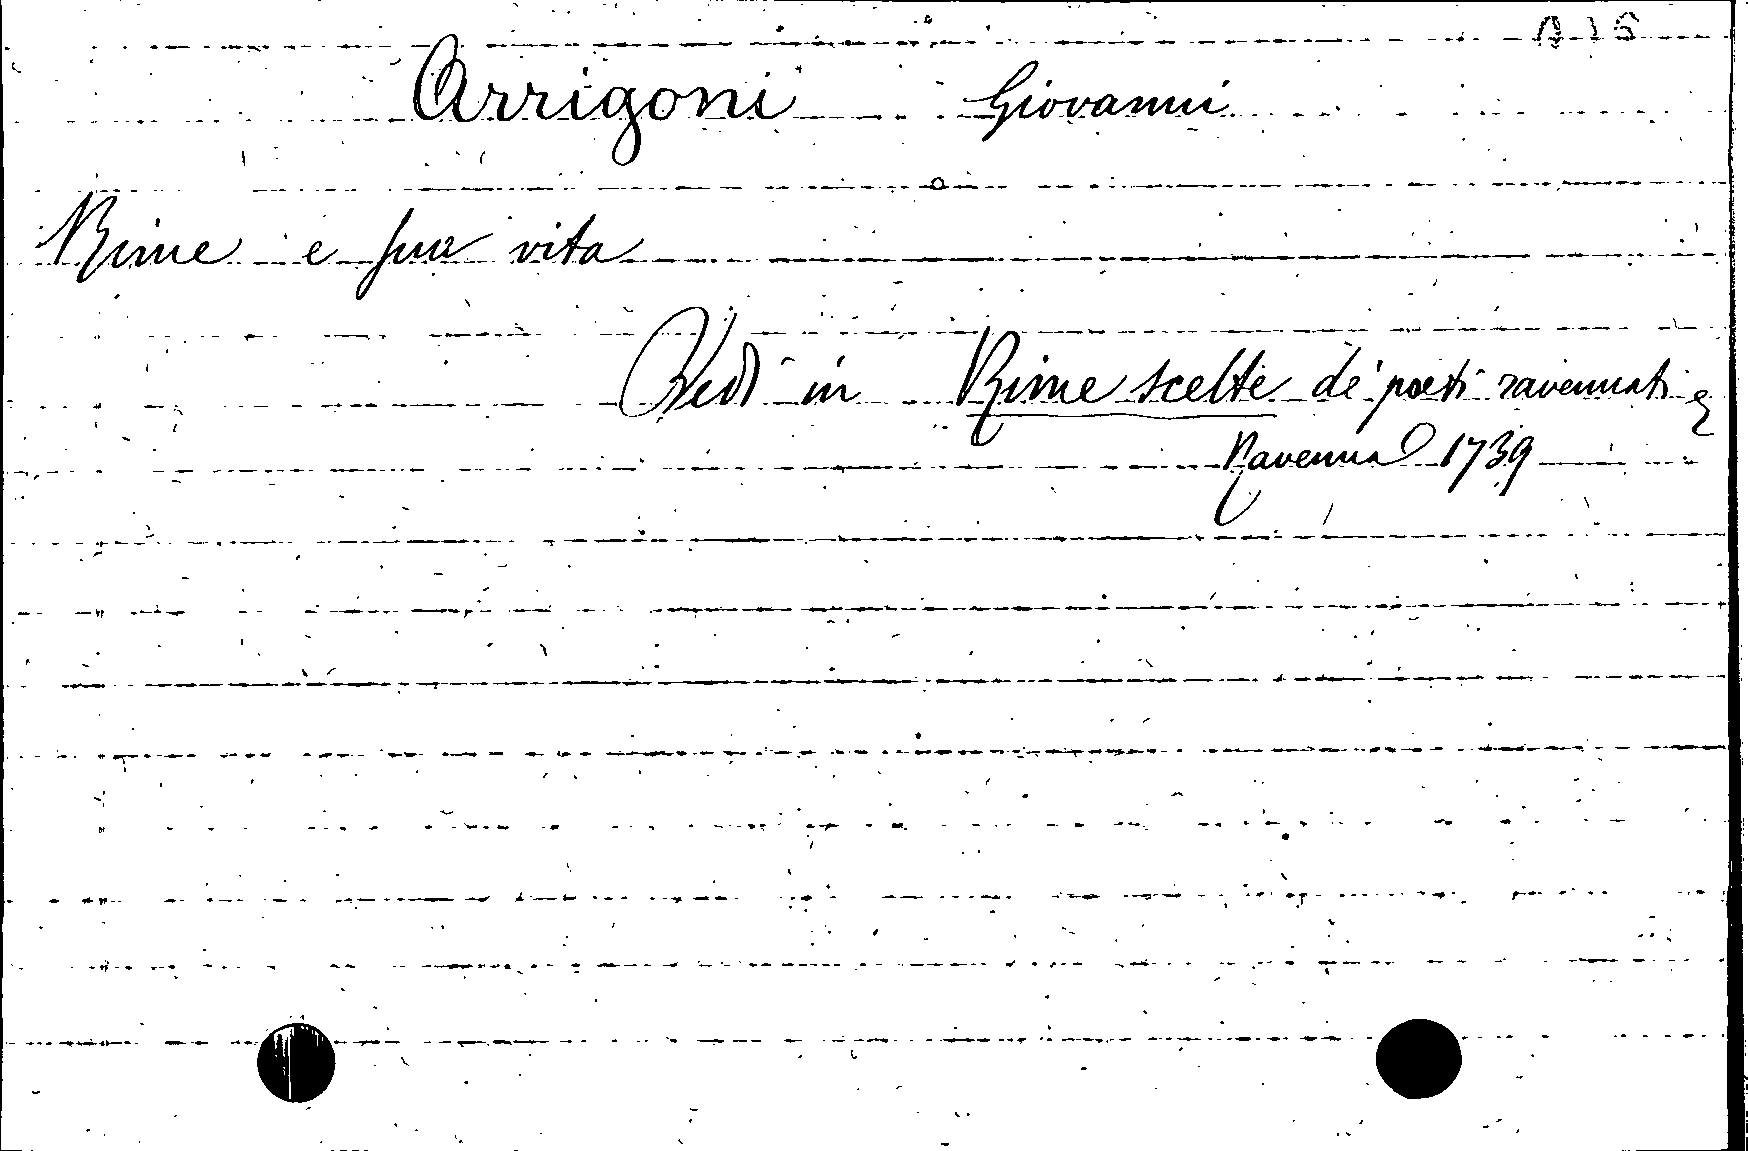 Arrigoni Giovanni
Rime e sua vita
Vedi in Rime scelte de' poeti ravennati
Ravenna 1739